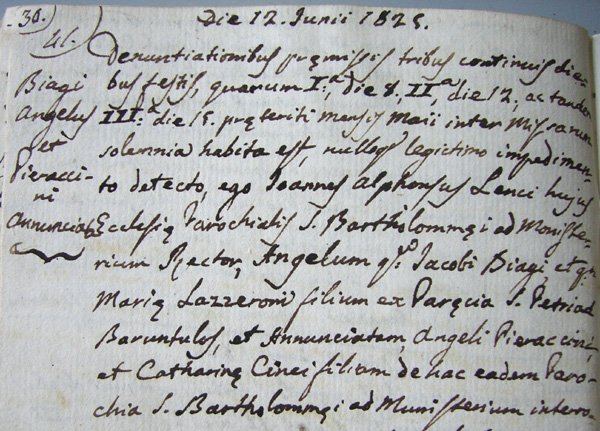 30.)
Die 12. Junii 1825.
41.
Denuntiationibus pręmissis tribus continuis die-
Biagi
bus festis, quarum I.a, die 8, II.a, die 12, ac tandem
Angelus
III.a die 15. pręteriti mensis Maii inter Missarum
et
solemnia habita est, nulloq̃ legictimo impedimen-
Pieracci-
to detecto, ego Joannes Alphonsus Lenci hujus
ni
Annunciata
Ecclesię Parochialis S. Bartholommęi ad Moniste-
rium Rector, Angelum qm Jacobi Biagi et qm
Marię Lazzeroni filium ex Paręcia S. Petri ad
Baruntulos, et Annunciatam, Angeli Pieraccini,
et Catharinę Cinci filiam de hac eadem Paro-
chia S. Bartholommęi ad Munisterium interro-